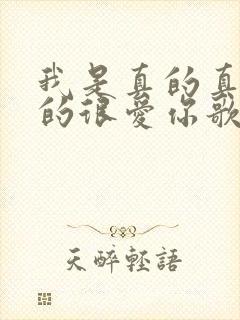 我是真的真
的很爱你歌
天醉轻語